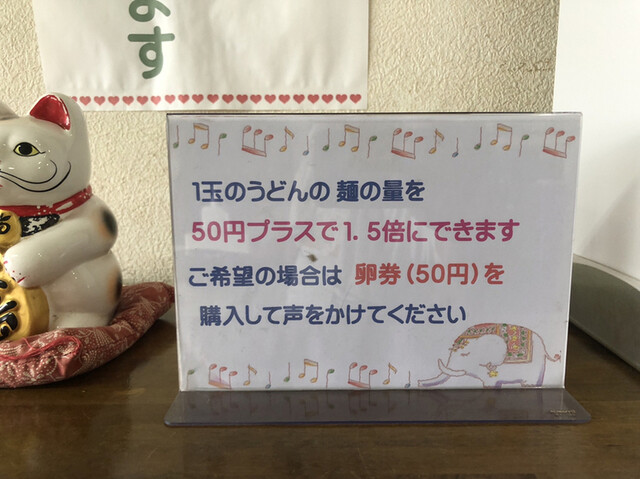 ます
1玉のうどんの 麺の量を
50円プラスで1.5倍にできます
ご希望の場合は 卵券(50円)を
購入して声をかけてください